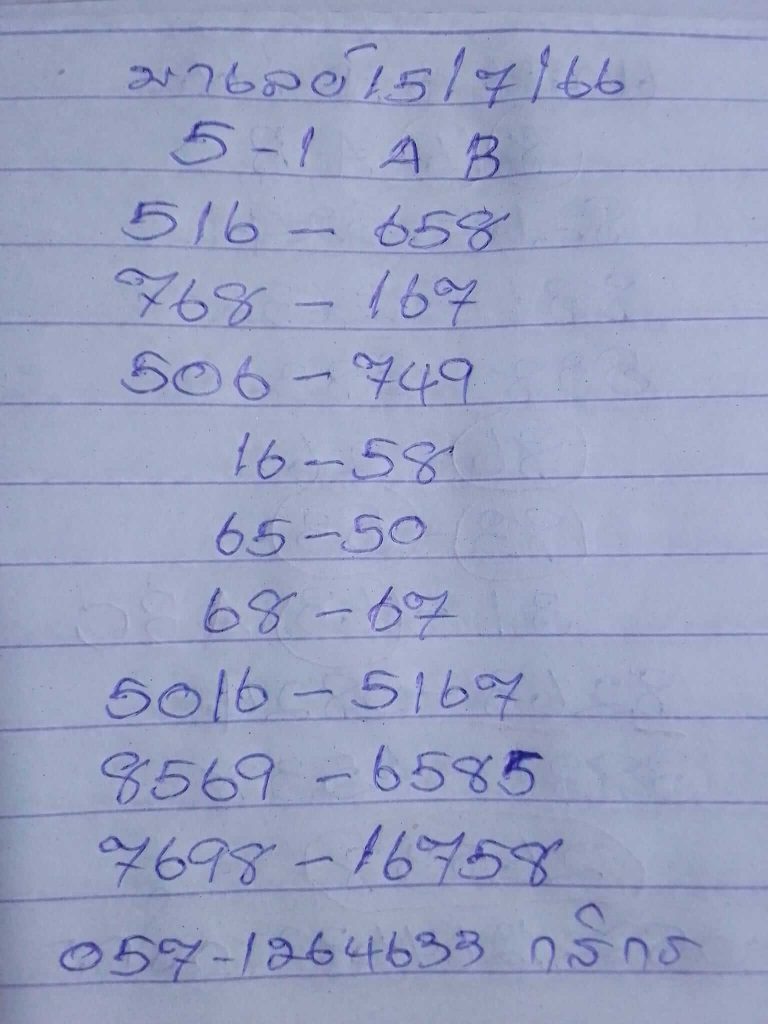 มาเลย์ 15/7/66
5-1 A B
516 - 658
768 - 167
506 - 749
16 - 58
65 - 50
68 - 67
5016 - 5167
8569 - 6585
7698 - 16758
057-1264633 กสิกร